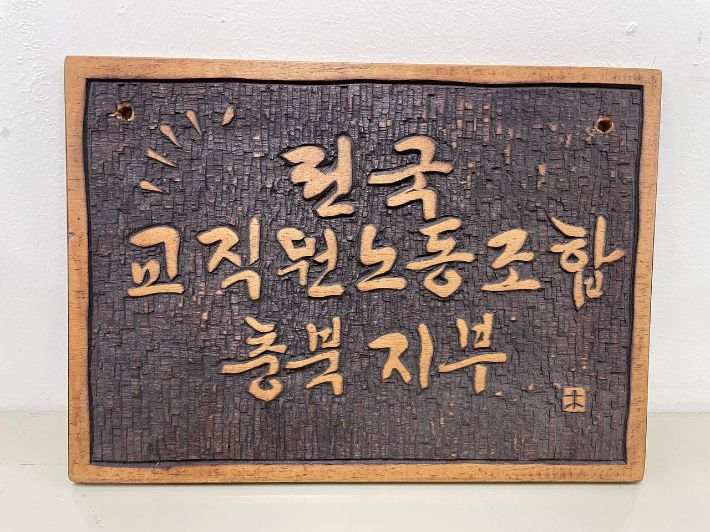 전국
교직원노동조합
충북지부
木